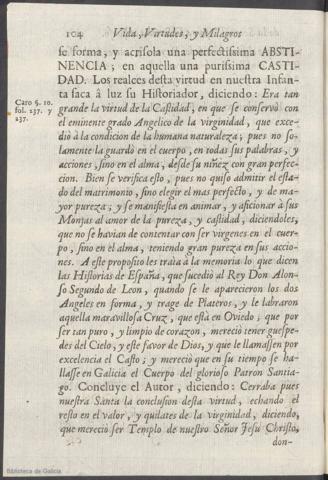 104 Vida, Virtudes, y Milagros
se forma, y acrisola una perfectissima ABSTI-
NENCIA; en aquella una purissima CASTI-
DAD. Los realces desta virtud en nuestra Infan-
ta saca à luz su Historiador, diciendo: Era tan
Caro §. 10.
fol. 237. y
237.
grande la virtud de la Castidad, en que se conservò con
el eminente grado Angelico de la virginidad, que exce-
diò à la condicion de la humana naturaleza; pues no so-
lamente la guardò en el cuerpo, en todas sus palabras, y
acciones, sino en el alma, desde su niñez con gran perfec-
cion. Bien se verifica esto, pues no quiso admitir el esta-
do del matrimonio, sino elegir el mas perfecto, y de ma-
yor pureza; y se manifiesta en animar, y aficionar à sus
Monjas al amor de la pureza, y castidad, diciendoles,
que no se havian de contentar con ser virgenes en el cuer-
po, sino en el alma, teniendo gran pureza en sus accio-
nes. A este proposito les traìa à la memoria lo que dicen
las Historias de España, que sucediò al Rey Don Alon-
so Segundo de Leon, quando se le aparecieron los dos
Angeles en forma, y trage de Plateros, y le labraron
aquella maravillosa Cruz, que està en Oviedo; que por
ser tan puro, y limpio de corazon, mereciò tener guespe-
des del Cielo, y este favor de Dios, y que le llamassen por
excelencia el Casto; y mereciò que en su tiempo se ha-
llasse en Galicia el Cuerpo del glorioso Patron Santia-
go. Concluye el Autor, diciendo: Cerraba pues
nuestra Santa la conclusion desta virtud, echando el
resto en el valor, y quilates de la virginidad, diciendo,
que mereciò ser Templo de nuestro Señor Jesu Christo,
don-
Biblioteca de Galicia